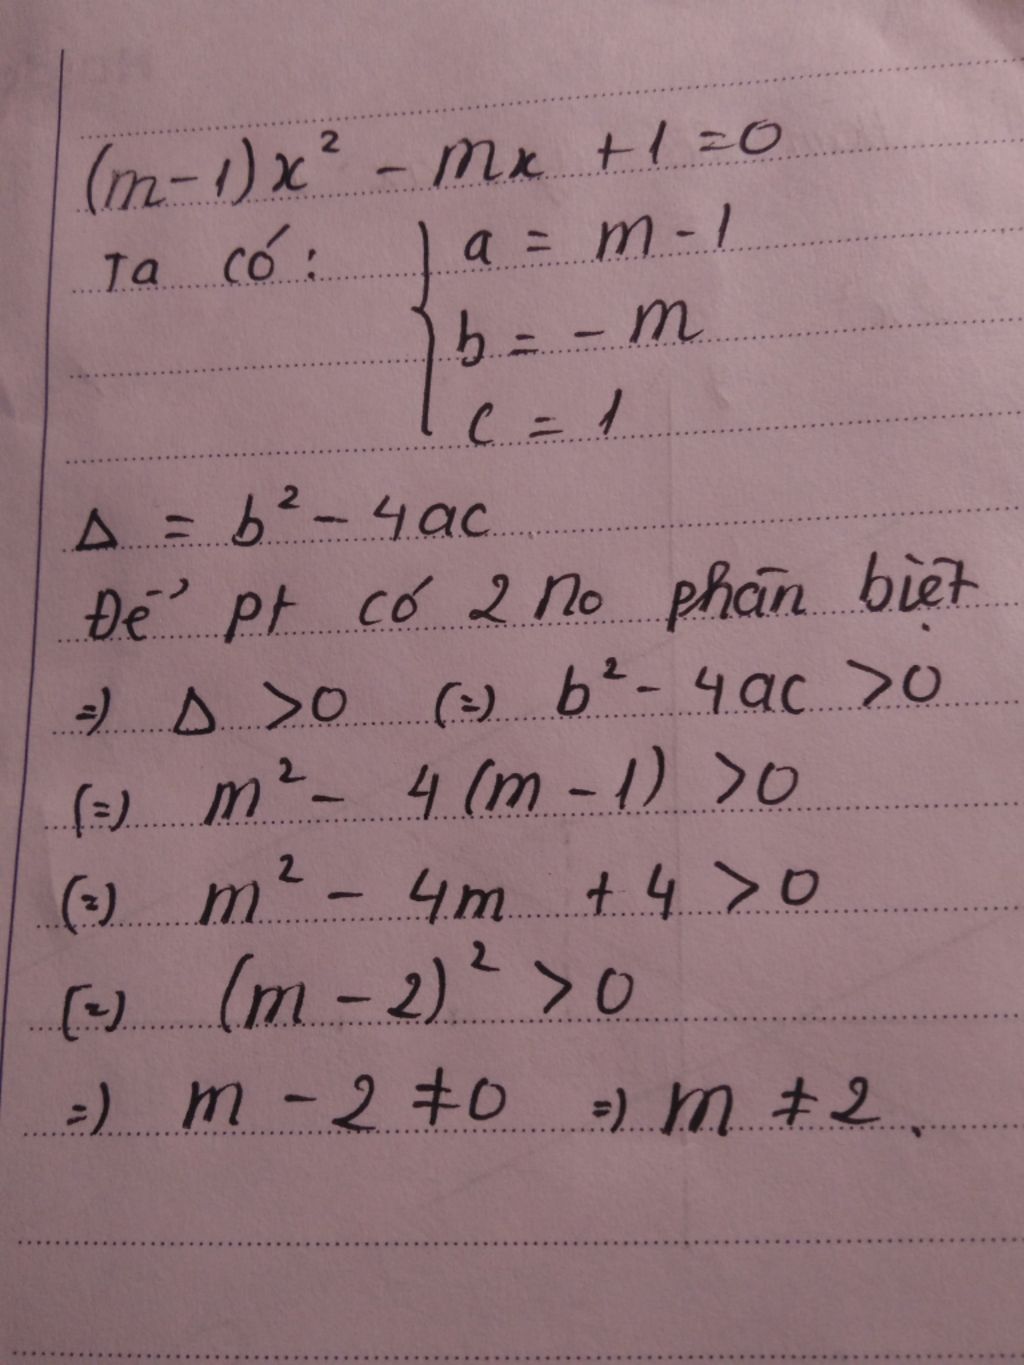 (m-1)x² - mx +1 =0
Ta có: { a = m - 1
b = - m
c = 1
Δ = b² - 4ac
Để pt có 2 no phân biệt
=) Δ >0 (=) b² - 4ac >0
(=) m² - 4(m - 1) >0
(=) m² - 4m + 4 >0
(=) (m - 2)² >0
=) m - 2 ≠0 =) m ≠ 2.